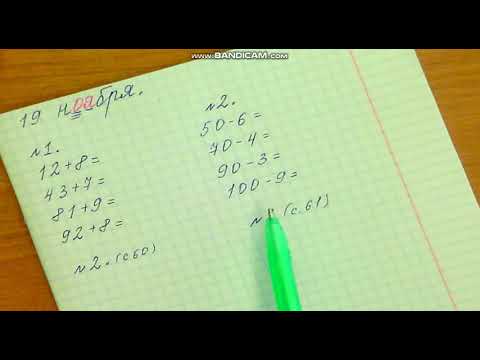 WWW.BANDICAM.COM
19 ноября.
№1.
12+8=
43+7=
81+9=
92+8=
№2. (с.60)
№2.
50-6=
70-4=
90-3=
100-9=
№ (с.61)